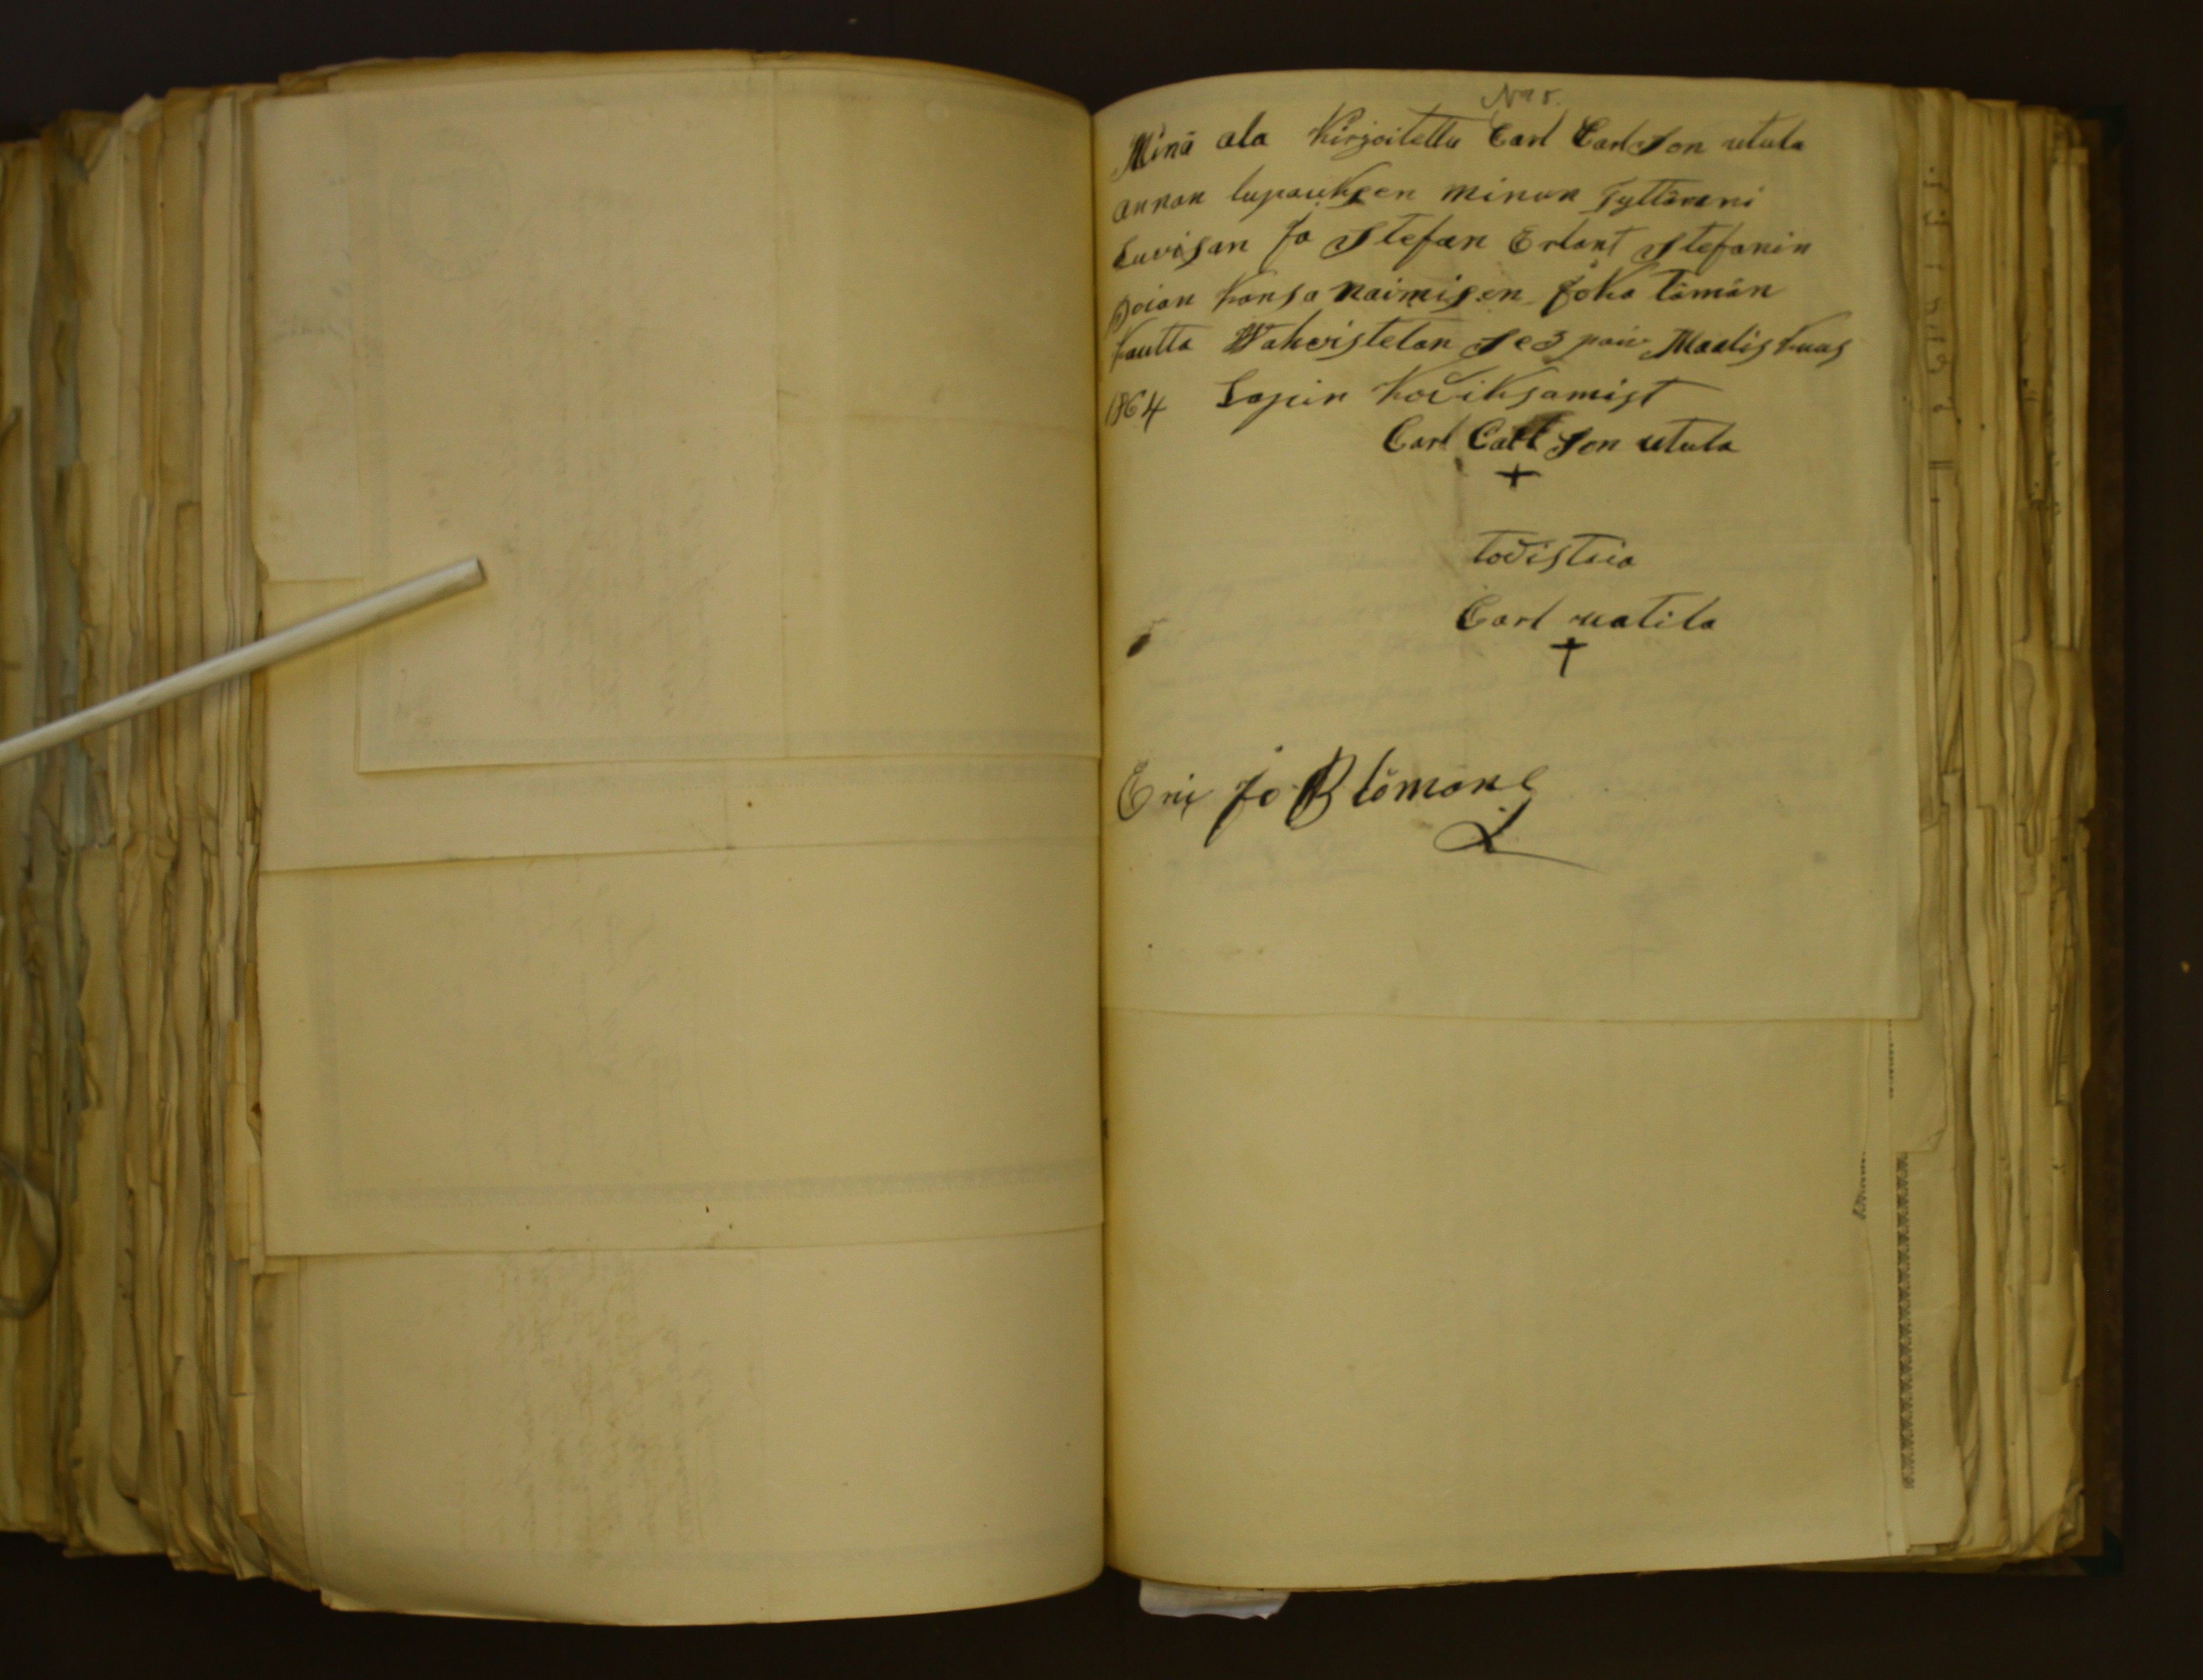 No 5.
Minä ala Kirjoitettu Carl Carlson utula
annan lupauksen minun Tyttäreni
Luvisan ja Stefan Erlant Stefanin
Poian kansa naimisen joka tämän
kautta Wahvistetan se 3 päiv Maaliskuus
1864 Lapin Kodiksamist
Carl Carlson utula
+
todistaa
Carl uatila
+
Eric Jo Blomane